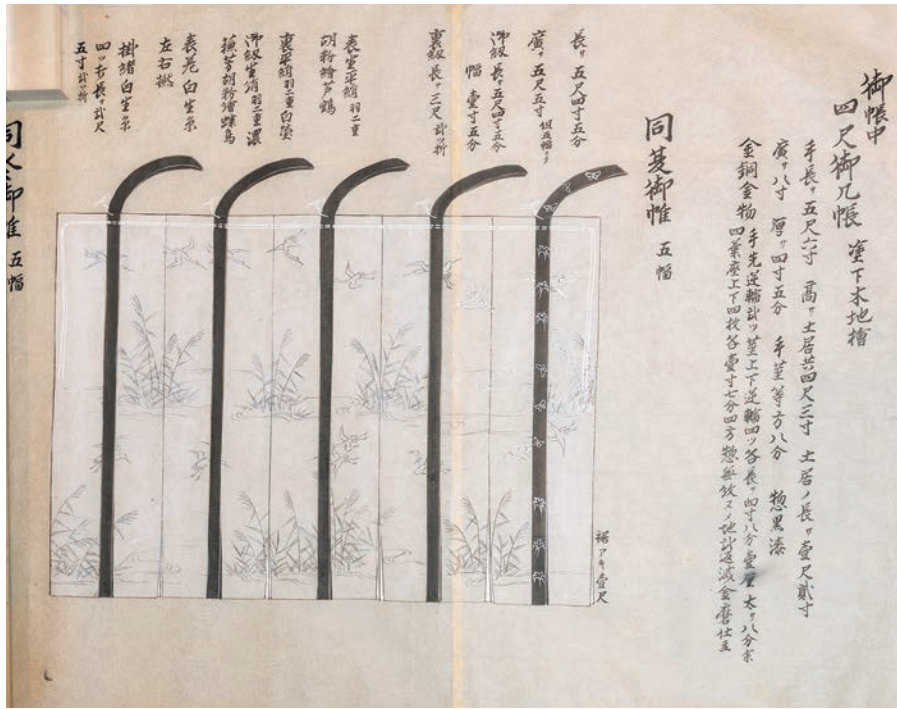 御帳中
四尺御几帳 塗下木地檜
手長サ五尺六寸 高サ土居共四尺三寸 土居ノ長サ壹尺貳寸
廣サ八寸 厚サ四寸五分 手莖等方八分 惣黒漆
金銅金物 手先逆輪貳ツ莖上下逆輪四ツ各長サ四寸八分壹厘太サ八分余
四葉座上下四枚各壹寸七分四方惣無紋スメ地貳返滅金磨仕立
同夏御帷 五幅
長サ五尺四寸五分
廣サ五尺五寸 但五幅ノ
御紐長サ五尺四寸五分
幅壹寸五分
裏紐長サ三尺貳ツ折
表生平絹羽二重
胡粉繪芦鶴
裏平絹羽二重白瑩
御紐生絹羽二重濃
蘇芳胡粉繪蝶鳥
表差白生糸
左右撚
掛緒白生糸
四ツ右長サ貳尺
五寸貳ツ折
裾アキ壹尺
同冬御帷 五幅